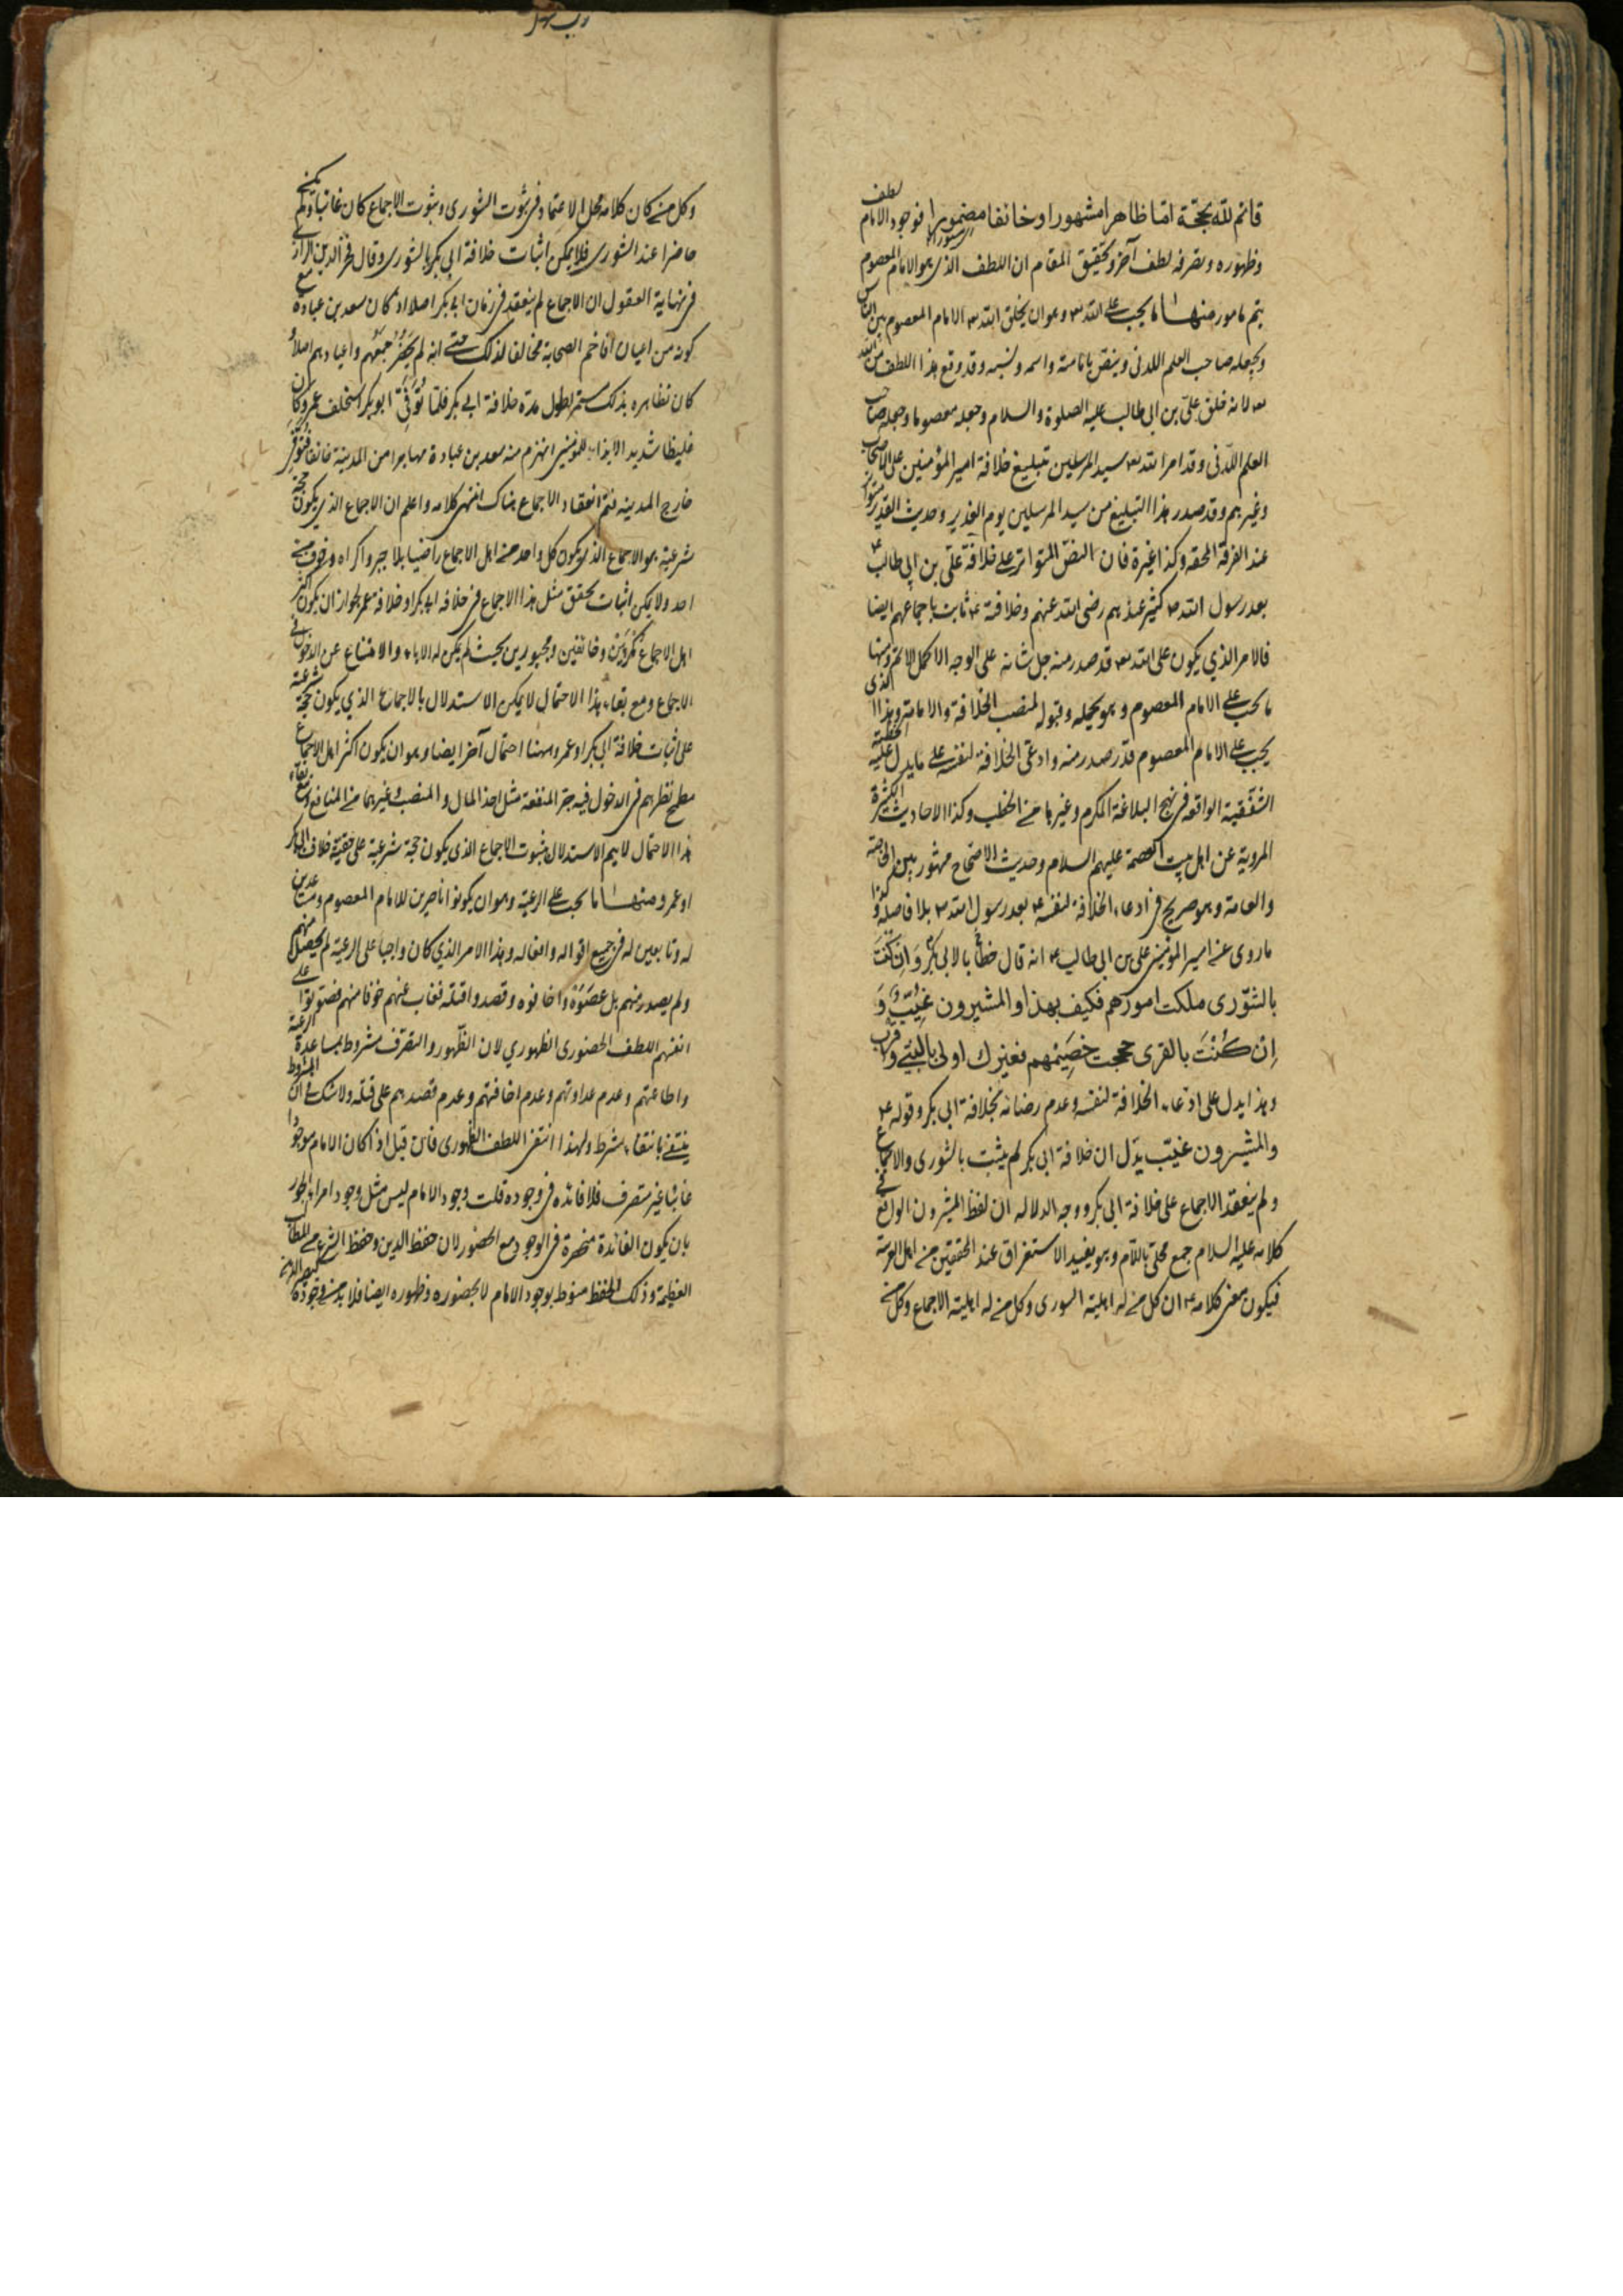 قائم لله بحجة اما ظاهرا مشهورا او خائفا مغمورا فوجود الامام لطف
وظهوره وتصرفه لطف آخر وتحقيق المقام ان اللطف الذى هو الامام المعصوم
يتم بامور منها ما يجب على الله تع وهو ان يخلق الله تع الامام المعصوم بين الناس
ويجعله صاحب العلم اللدنى وينص بامامته واسمه ونسبه وقد وقع هذا اللطف من الله
تع لانه خلق على بن ابى طالب عليه الصلوة والسلام وجعله معصوما وجعله صاحب
العلم اللدنى وقد امر الله تع سيد المرسلين بتبليغ خلافة امير المؤمنين على الاصحاب
وغيرهم وقد صدر هذا التبليغ من سيد المرسلين يوم الغدير وحديث الغدير متواتر
عند الفرقة المحقة وكذا غيره فان النص المتواتر على خلافة على بن ابى طالب ع
بعد رسول الله ص كثير عندهم رضى الله عنهم وخلافته ع ثابت باجماعهم ايضا
فالامر الذي يكون على الله تع قد صدر منه جل شانه على الوجه الاكمل الاتم ومنها
ما يجب على الامام المعصوم وهو تحمله وقبوله لمنصب الخلافة والامامة وهذا الذى
يجب على الامام المعصوم قد صدر منه وادعى الخلافة لنفسه على ما يدل عليه الخطبة
الشقشقية الواقعة فى نهج البلاغة المكرم وغيرها من الخطب وكذا الاحاديث الكثيرة
المروية عن اهل بيت العصمة عليهم السلام وحديث الاحتجاج مشهور بين الخاصة
والعامة وهو صريح فى ادعاء الخلافة لنفسه ع بعد رسول الله ص بلا فاصلة وكذا
ما روى عن امير المؤمنين على بن ابى طالب ع انه قال خطابا لابى بكر وان كنت
بالشورى ملكت امورهم فكيف بهذا والمشيرون غيب و
ان كنت بالقربى حججت خصيمهم فغيرك اولى بالنبي واقرب
وهذا يدل على ادعاء الخلافة لنفسه وعدم رضائه بخلافة ابى بكر وقوله ع
والمشيرون غيب يدل ان خلافة ابى بكر لم يثبت بالشورى والاجماع
ولم ينعقد الاجماع على خلافة ابى بكر ووجه الدلالة ان لفظ المشيرون الواقع فى
كلامه عليه السلام جمع محلى باللام وهو يفيد الاستغراق عند المحققين من اهل العربية
فيكون معنى كلامه ع ان كل من له اهلية الشورى وكل من له اهلية الاجماع وكل من
وكل من كان كلامه محل الاعتماد فى ثبوت الشورى وثبوت الاجماع كان غائبا ولم يكن
حاضرا عند الشورى فلا يمكن اثبات خلافة ابى بكر بالشورى وقال فخر الدين الرازى
فى نهاية العقول ان الاجماع لم ينعقد فى زمان ابى بكر اصلا اذ كان سعد بن عبادة مع
كونه من اعيان افاخم الصحابة مخالفا لذلك حتى انه لم يحضر جمعهم واعيادهم اصلا
كان تظاهره بذلك مستمر بطول مدة خلافة ابى بكر فلما توفى ابو بكر استخلف عمر وكان
غليظا شديد الايذاء للمؤمنين انهزم منه سعد بن عبادة مهاجرا من المدينة خائفا فتوفى
خارج المدينة فتم انعقاد الاجماع هناك انتهى كلامه واعلم ان الاجماع الذي يكون حجة
شرعية هو الاجماع الذى يكون كل واحد من اهل الاجماع راضيا بلا جبر واكراه وخوف من
احد ولا يمكن اثبات تحقق مثل هذا الاجماع فى خلافة ابى بكر او خلافة عمر لجواز ان يكون اكثر
اهل الاجماع مكرهين وخائفين ومجبورين بحيث لم يكن له الاباء والامتناع عن الدخول فى
الاجماع ومع بقاء هذا الاحتمال لا يمكن الاستدلال بالاجماع الذي يكون حجة شرعية
على اثبات خلافة ابى بكر او عمر وههنا احتمال آخر ايضا وهو ان يكون اكثر اهل الاجماع
مطمح نظرهم فى الدخول فيه جر المنفعة مثل اخذ المال والمنصب وغيرهما من المنافع ومع بقاء
هذا الاحتمال لا يتم الاستدلال بثبوت الاجماع الذى يكون حجة شرعية على حقية خلافة ابى بكر
او عمر ومنها ما يجب على الرعية وهو ان يكونوا ناصرين للامام المعصوم ومساعدين
له وتابعين له فى جميع اقواله وافعاله وهذا الامر الذي كان واجبا على الرعية لم يحصل منهم
ولم يصدر منهم بل عصوه واخافوه وقصدوا قتله فغاب عنهم خوفا منهم ففوتوا على
انفسهم اللطف الحضورى الظهوري لان الظهور والتصرف مشروط بمساعدة الرعية
واطاعتهم وعدم عداوتهم وعدم اخافتهم وعدم قصدهم على قتله ولا شك ان المشروط
ينتفى بانتفاء شرط ولهذا انتفى اللطف الظهورى فان قيل اذا كان الامام موجودا
غائبا غير متصرف فلا فائدة فى وجوده قلت وجود الامام ليس مثل وجود امراء الجور
بان يكون الفائدة منحصرة فى الوجود مع الحضور لان حفظ الدين وحفظ الشرع من المطالب
العظيمة وذلك الحفظ منوط بوجود الامام لا بحضوره وظهوره ايضا فلا بد من وجوده